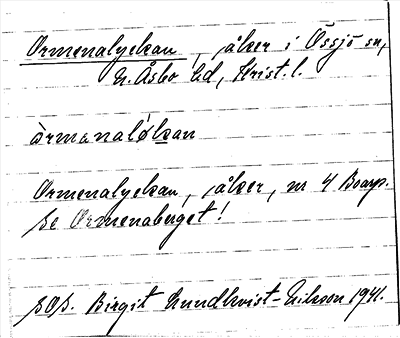 Ormenalyckan, åker i Össjö sn,
N. Åsbo hd, Krist. l.
àrmənaløkan
Ormenalyckan, åker, nr 4 Boarp.
Se Ormenaberget!
SOS. Birgit Lundkvist-Nilsson 1941.